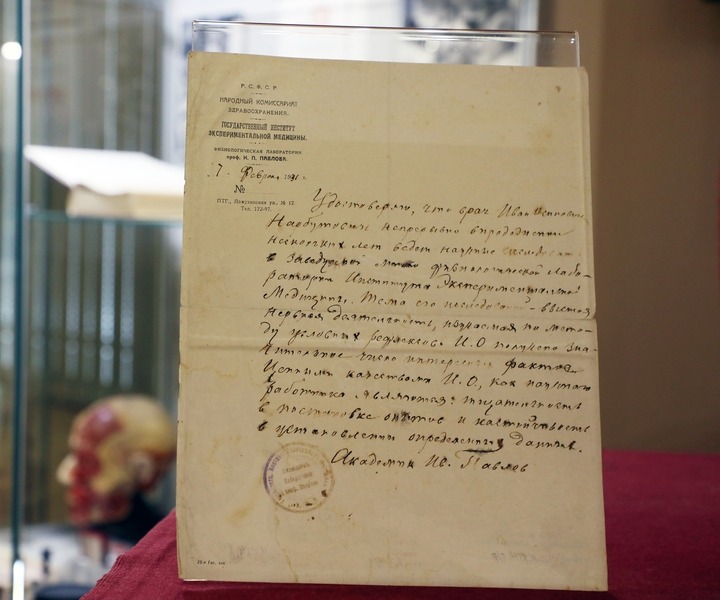 Р. С. Ф. С. Р.
НАРОДНЫЙ КОМИССАРИАТ
ЗДРАВООХРАНЕНИЯ.
ГОСУДАРСТВЕННЫЙ ИНСТИТУТ
ЭКСПЕРИМЕНТАЛЬНОЙ МЕДИЦИНЫ.
ФИЗИОЛОГИЧЕСКАЯ ЛАБОРАТОРИЯ
проф. И. П. ПАВЛОВА.
7 Февраля
№
ПТГ., Лопухинская ул., № 12.
Тел. 172-97.
Удостоверяю, что врач Иван Осипович
Нарбутович непрерывно впродолжении
нескольких лет ведет научные
в заведуемой мною физиологической лабо-
ратории Института Экспериментальной
Медицины. Тема его исследований - высшая
нервная деятельность, изучаемая по мето-
ду условных рефлексов. И.О получено зна-
чительное число интересных фактов.
Ценными качествами И.О, как научного
работника являются: тщательность
в постановке опытов и настойчивость
в установлении определенных данных.
Академик Ив. Павлов